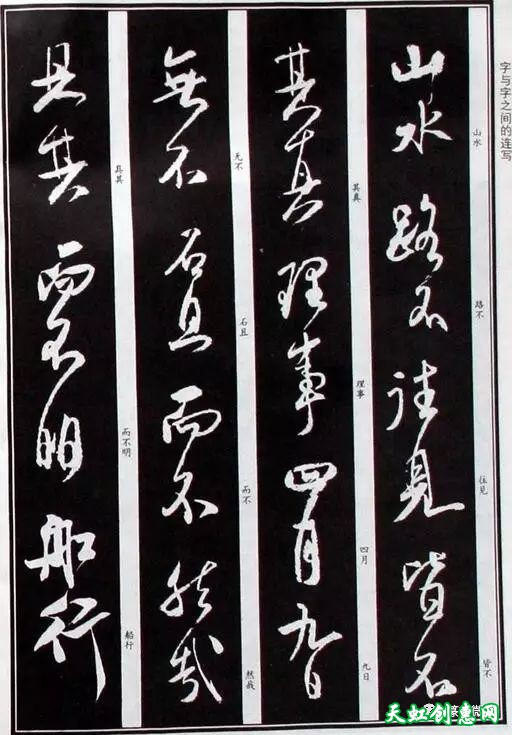 字与字之间的连写
山水路不往见皆不
山水
路不
往见
皆不
其真理事四月九日
其真
理事
四月
九日
無不石且而不然哉
无不
石且
而不
然哉
具其而不明船行
具其
而不明
船行
天虹创惠网